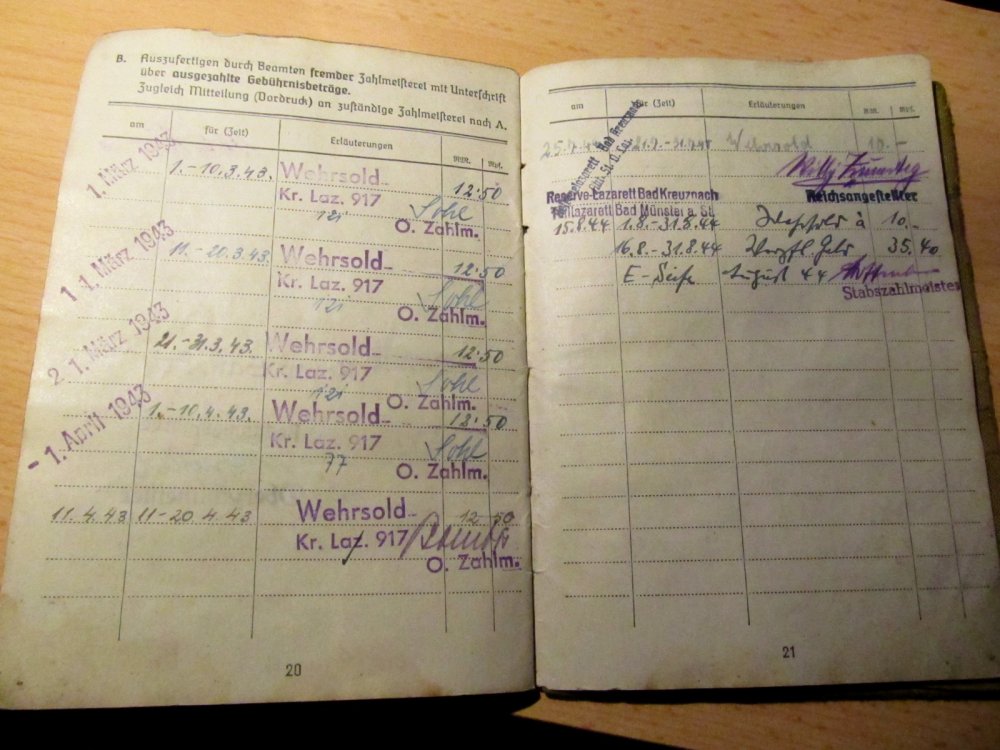 B. Auszufertigen durch Beamten fremder Zahlmeisterei mit Unterschrift
über ausgezahlte Gebührnisbeträge.
Zugleich Mitteilung (Vordruck) an zuständige Zahlmeisterei nach A.
am für (Zeit) Erläuterungen RM. Rpf.
1. März 1943 1.-10.3.43. Wehrsold 12.50
Kr. Laz. 917
O. Zahlm.
11. März 1943 11.-20.3.43. Wehrsold 12.50
Kr. Laz. 917
O. Zahlm.
21. März 1943 21.-31.3.43. Wehrsold 12.50
Kr. Laz. 917
O. Zahlm.
-1. April 1943 1.-10.4.43. Wehrsold 12.50
Kr. Laz. 917
77
O. Zahlm.
11.4.43 11-20.4.43 Wehrsold 12.50
Kr. Laz. 917
O. Zahlm.
20
am für (Zeit) Erläuterungen RM. Rpf.
Wehrsold 10.-
Willy
Reserve-Lazarett Bad Kreuznach Reichsangestellter
Teillazarett Bad Münster a. St.
15.8.44 1.8.-31.8.44 Wehrsold à 10.-
16.8.-31.8.44 Verpfl. Geld 35.40
E-Seife August 44
Stabszahlmeister
21